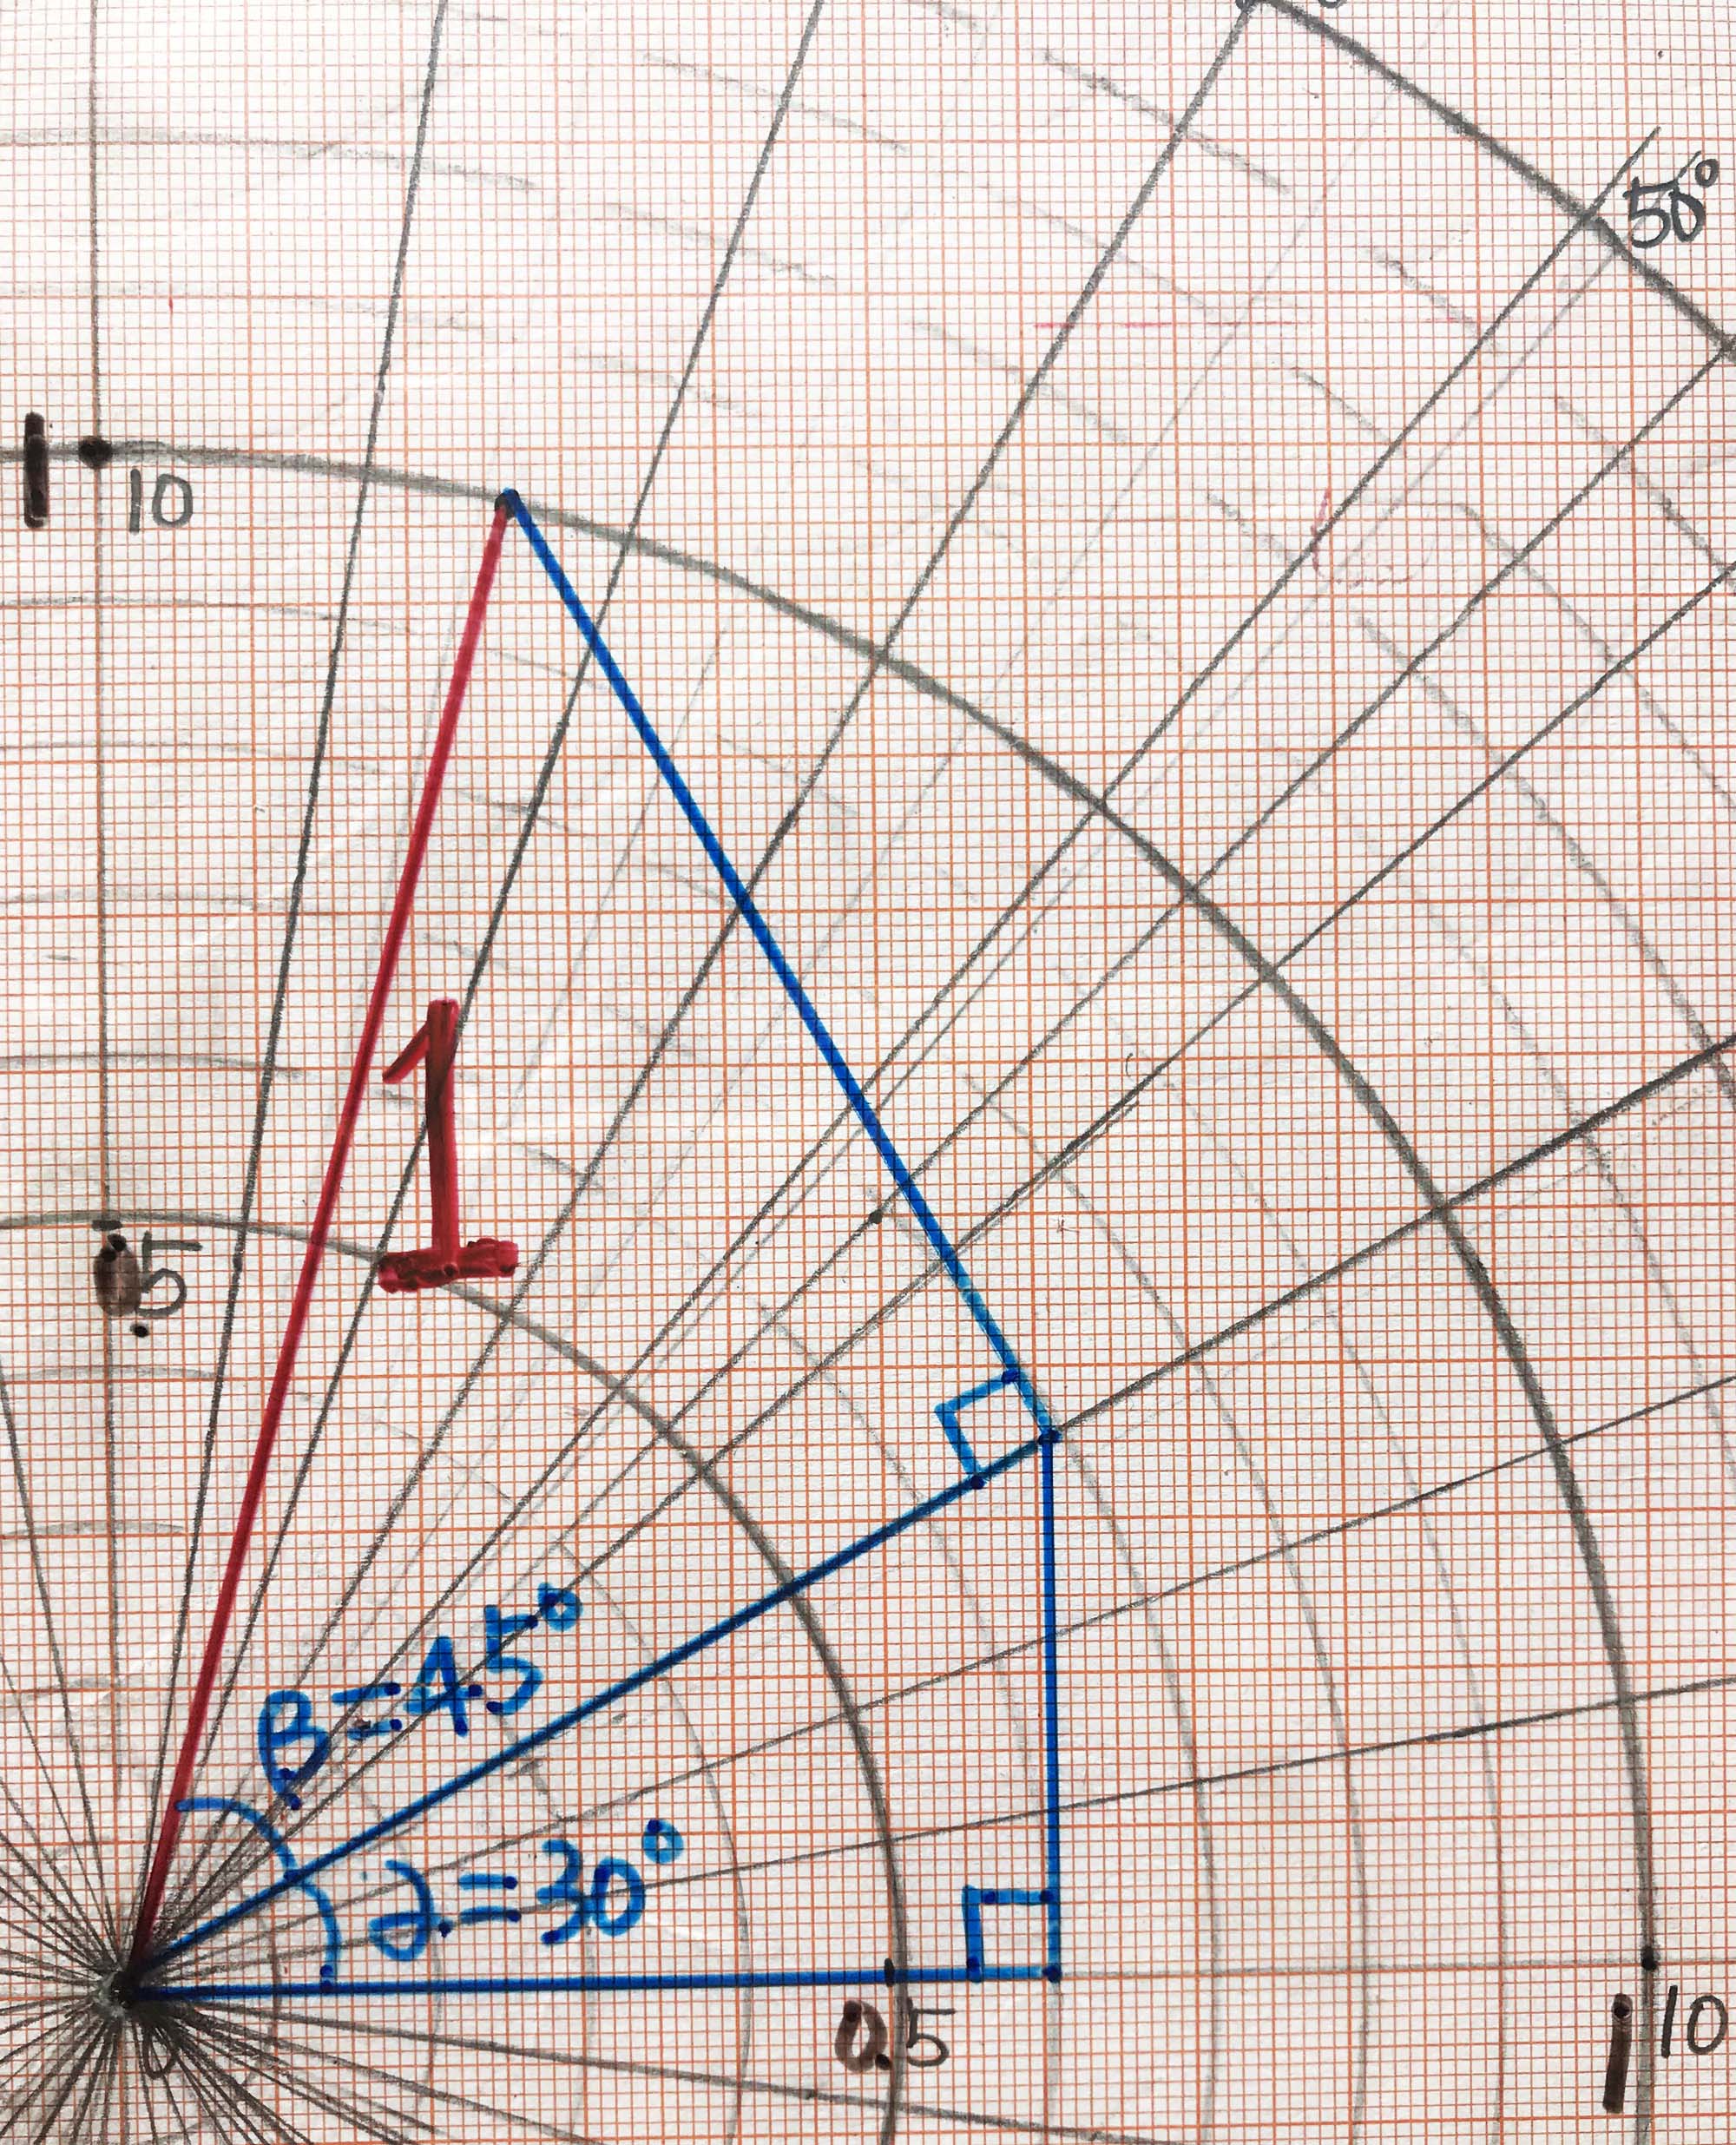 50°
1
10
1
.5
β=45°
α=30°
0
0.5
1
10